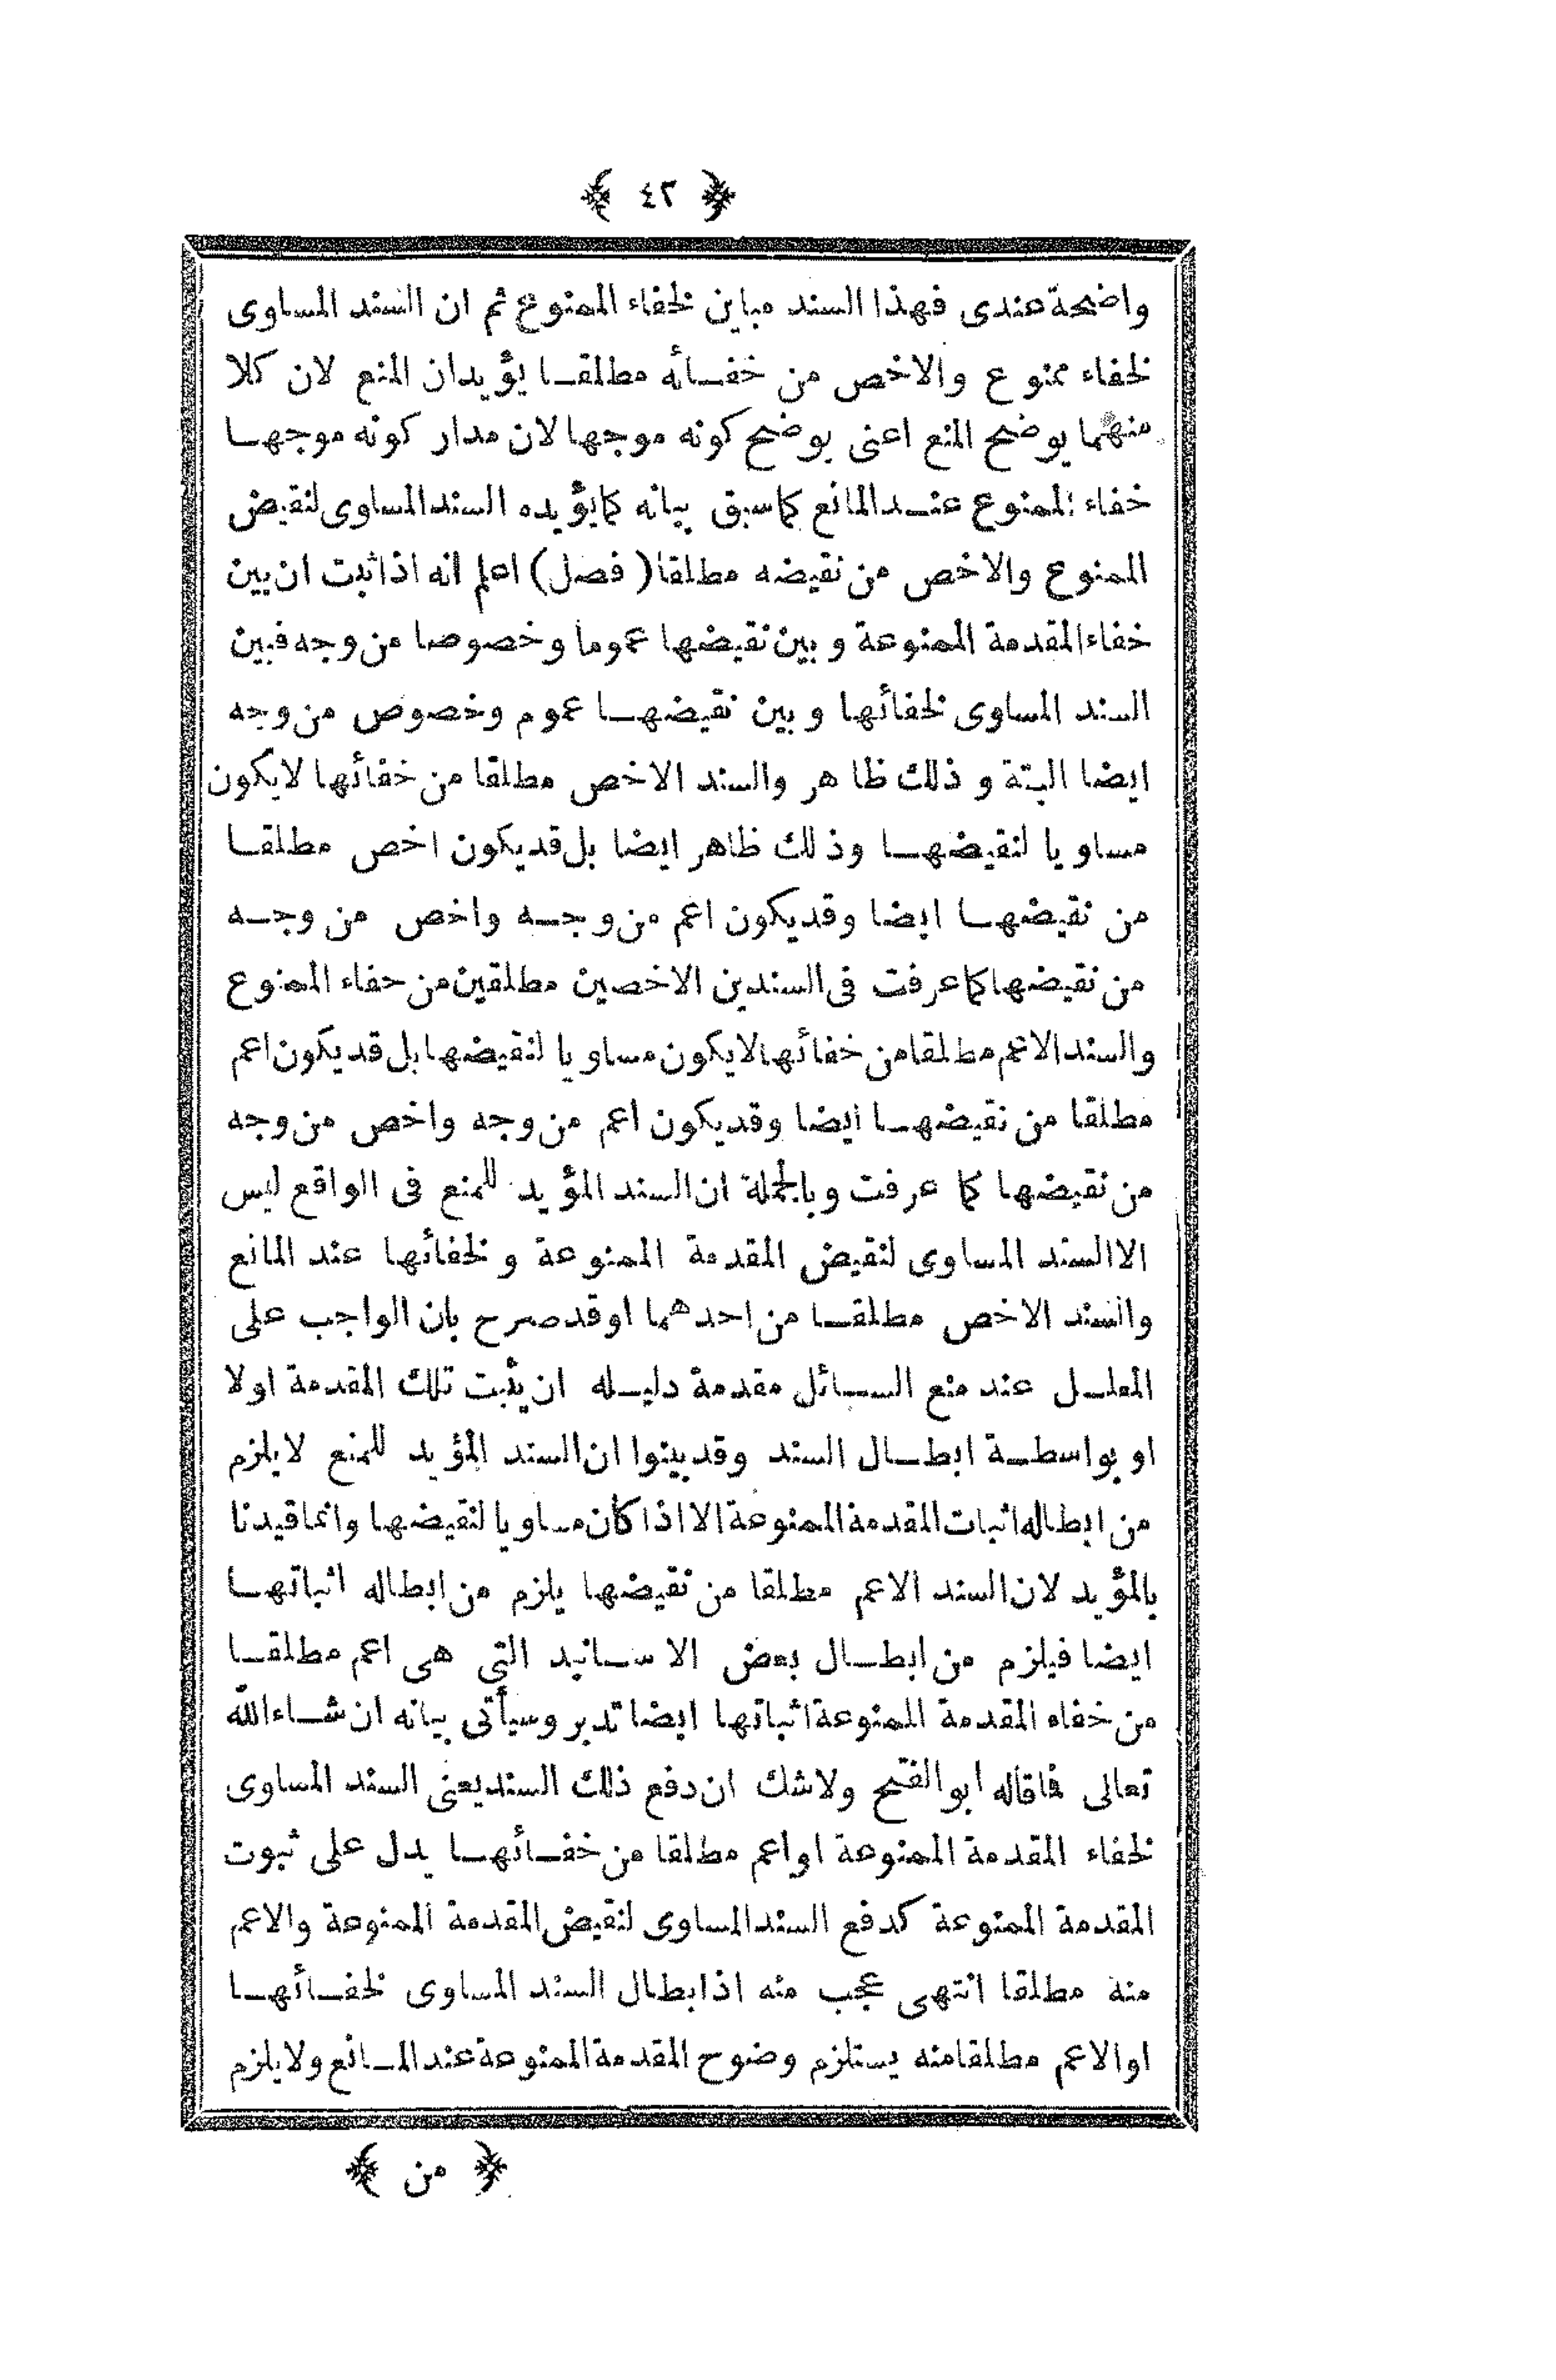 ﴿ ٤٢ ﴾
واضحة عندى فهذا السند مباين لخفاء الممنوع ثم ان السند المساوى
لخفاء ممنوع والاخص من خفـائه مطلقـا يؤيدان المنع لان كلا
منهما يوضح المنع اعنى يوضح كونه موجها لان مدار كونه موجهـا
خفاء الممنوع عنـد المانع كما سبق بيانه كما يؤيده السند المساوى لنقيض
الممنوع والاخص من نقيضه مطلقا ( فصل ) اعلم انه اذا ثبت ان بين
خفاء المقدمة الممنوعة و بين نقيضها عموما وخصوصا من وجه فبين
السند المساوى لخفائها و بين نقيضهـا عموم وخصوص من وجه
ايضا البتة و ذلك ظاهر والسند الاخص مطلقا من خفائها لا يكون
مساويا لنقيضهـا وذلك ظاهر ايضا بل قد يكون اخص مطلقـا
من نقيضهـا ايضا وقد يكون اعم من وجـه واخص من وجـه
من نقيضها كما عرفت فى السندين الاخصين مطلقين من حفاء الممنوع
والسند الاعم مطلقا من خفائها لا يكون مساويا لنقيضها بل قد يكون اعم
مطلقا من نقيضهـا ايضا وقد يكون اعم من وجه واخص من وجه
من نقيضها كما عرفت وبالجملة ان السند المؤيد للمنع فى الواقع ليس
الا السند المساوى لنقيض المقدمة الممنوعة و لخفائها عند المانع
والسند الاخص مطلقـا من احدهما اوقد صرح بان الواجب على
المعلـل عند منع السـائل مقدمة دليـله ان يثبت تلك المقدمة اولا
او بواسطـة ابطـال السند وقد بينوا ان السند المؤيد للمنع لا يلزم
من ابطاله اثبات المقدمة الممنوعة الا اذا كان مساويا لنقيضها وانما قيدنا
بالمؤيد لان السند الاعم مطلقا من نقيضها يلزم من ابطاله اثباتهـا
ايضا فيلزم من ابطـال بعض الاسـانيد التى هى اعم مطلقـا
من خفاء المقدمة الممنوعة اثباتها ايضا تدبر وسيأتى بيانه ان شـاء الله
تعالى فما قاله ابو الفتح ولا شك ان دفع ذلك السند يعنى السند المساوى
لخفاء المقدمة الممنوعة او اعم مطلقا من خفـائهـا يدل على ثبوت
المقدمة الممنوعة كدفع السند المساوى لنقيض المقدمة الممنوعة والاعم
منه مطلقا انتهى عجب منه اذ ابطال السند المساوى لخفـائهـا
او الاعم مطلقا منه يستلزم وضوح المقدمة الممنوعة عند المـانع ولا يلزم
﴿ من ﴾